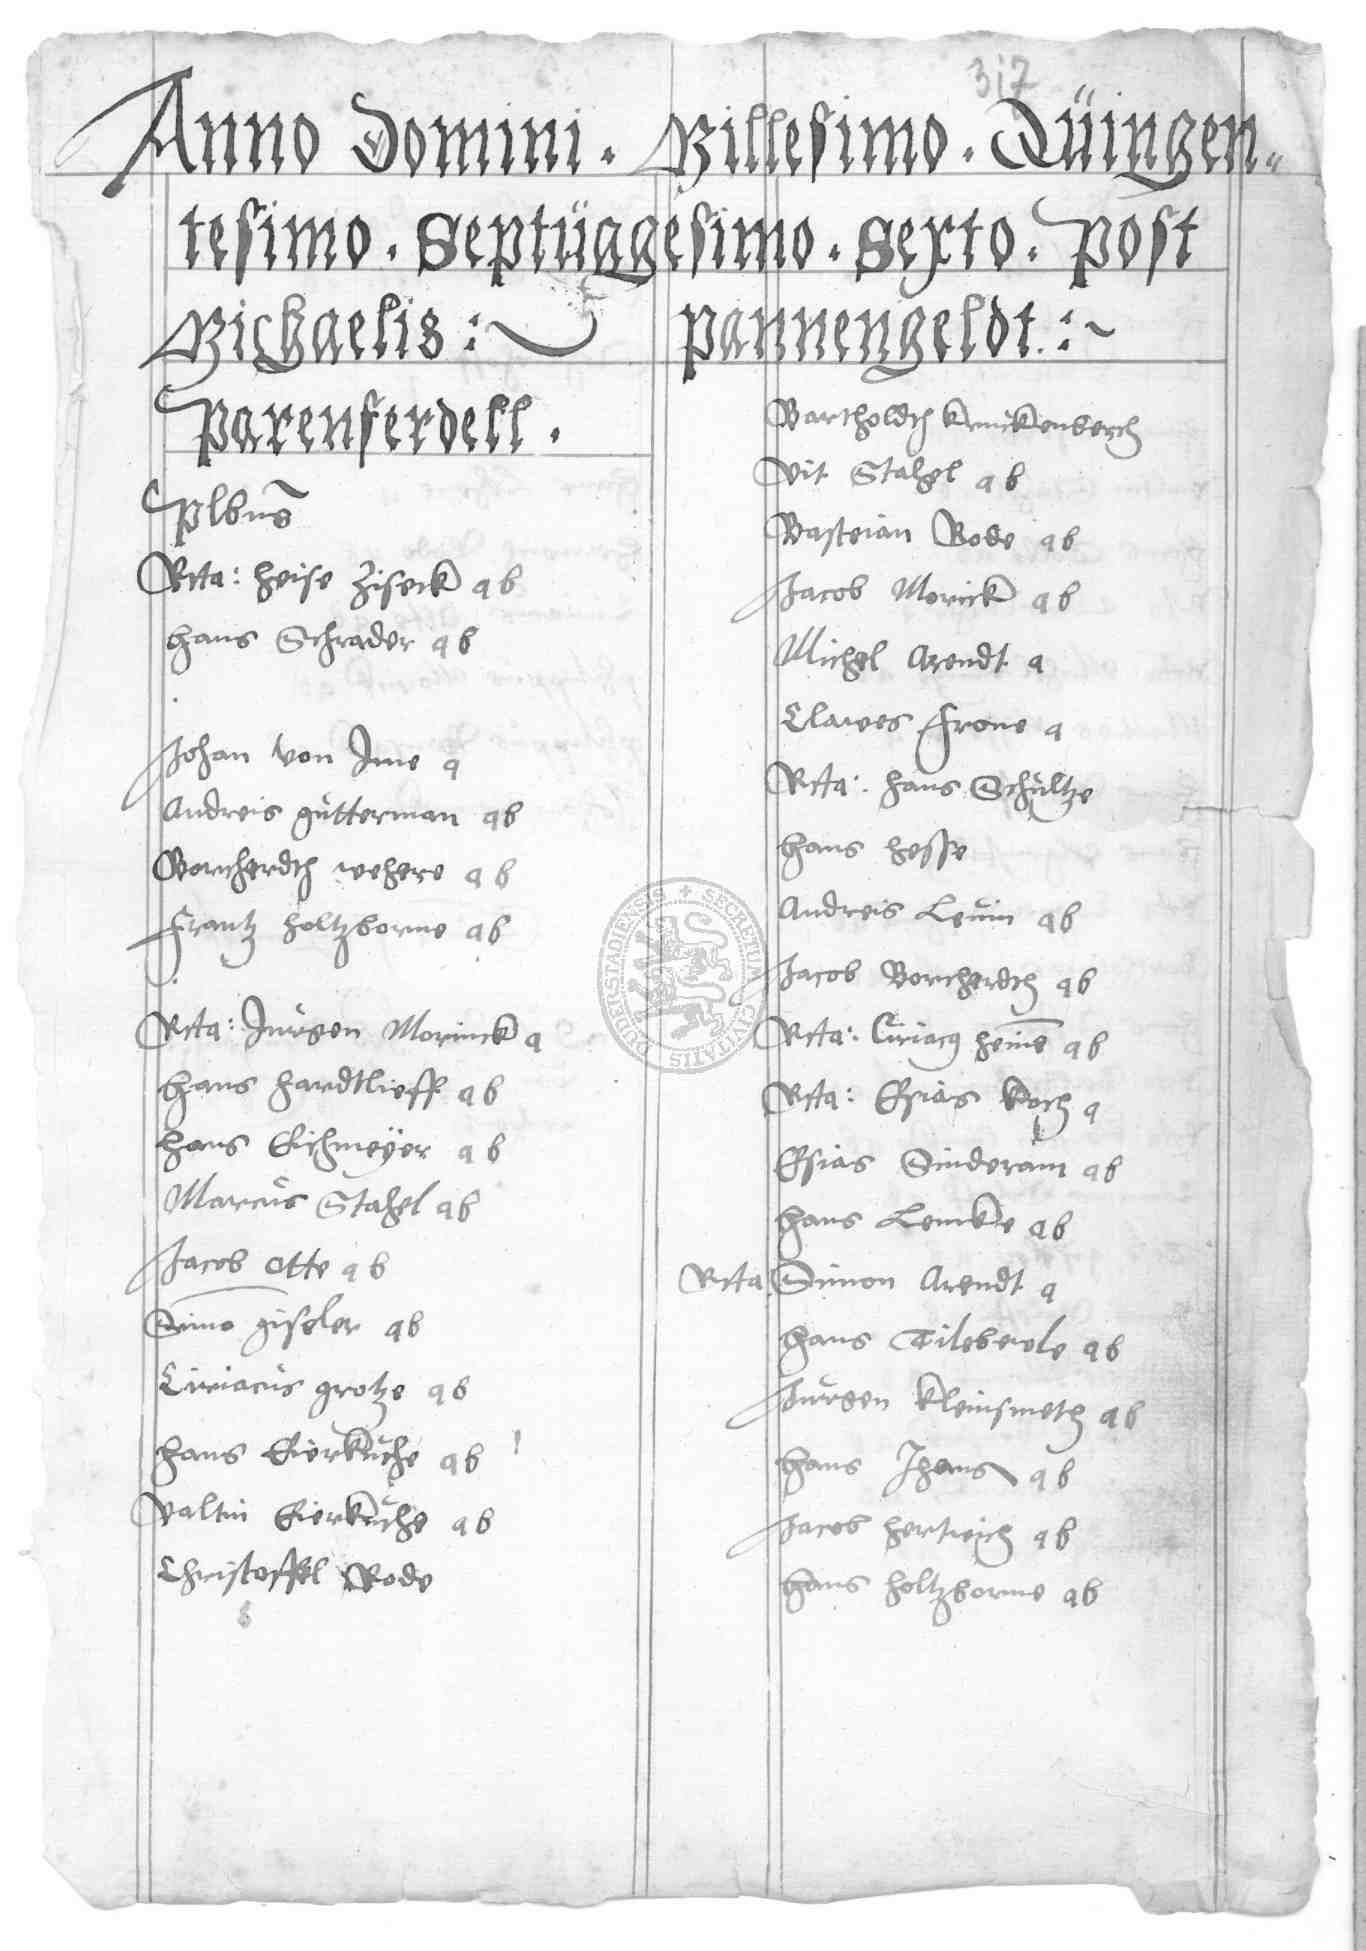 317
Anno Domini . Millesimo . Quingen„
tesimo . Septuaggesimo . Sexto . Post
Michaelis : Pannengeldt :~
Parenferdell .
Plbns
Rcta: Heise Ziseck ab
Hans Schrader ab
Johan von Ime a
Andreis gütterman ab
Borcherdth wehere ab
Frantz Holtzborne ab
Rcta: Jurgen Morinck a
Hans Hardtlieff ab
Hans Eichmeÿer ab
Marcus Stahel ab
Jacob Otte ab
Simo giseler ab
Ciriacus grotze ab
Hans Eierkuche ab
Valtin Eierkuche ab
Christoffel Rode
Bartholdth Kruckenberch
Vit Stahel ab
Basteian Rode ab
Jacob Morick ab
Michel Arendt a
Clawes Frone a
Rcta: Hans Schultze
Hans Hesse
Andreis Levin ab
Jacob Borcherdth ab
Rcta: Ciriacg Heine ab
Rcta: Esias Koch a
Esias Sinderam ab
Hans Lemke ab
Rcta Simon Arendt a
Hans Tilebeele ab
Jurgen Kleinsmeth ab
Hans Ihans ab
Jacob Hertwich ab
Hans Holtzborne ab
SECRETUM CIVITATIS DUDERSTADIENSIS